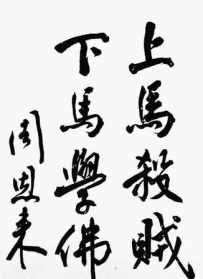 上馬殺賊
下馬學佛
周恩來